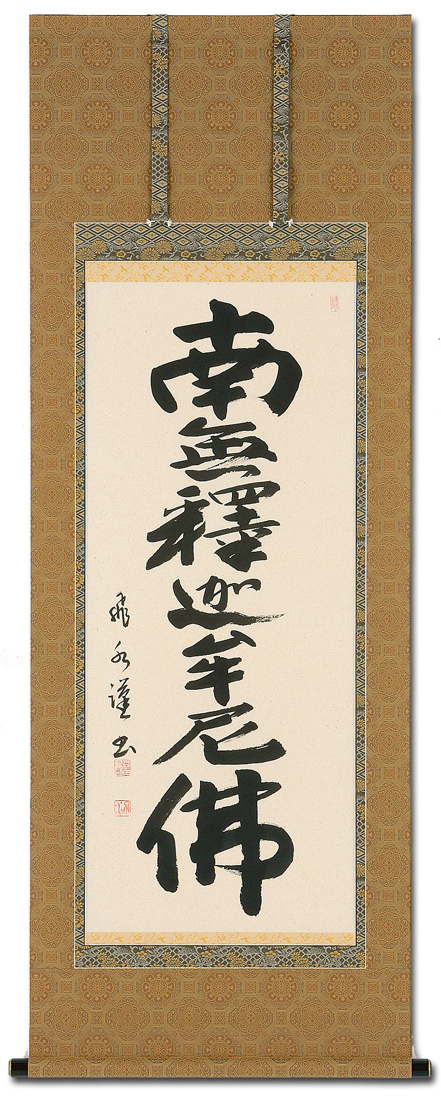 南無釋迦牟尼佛
水謹書